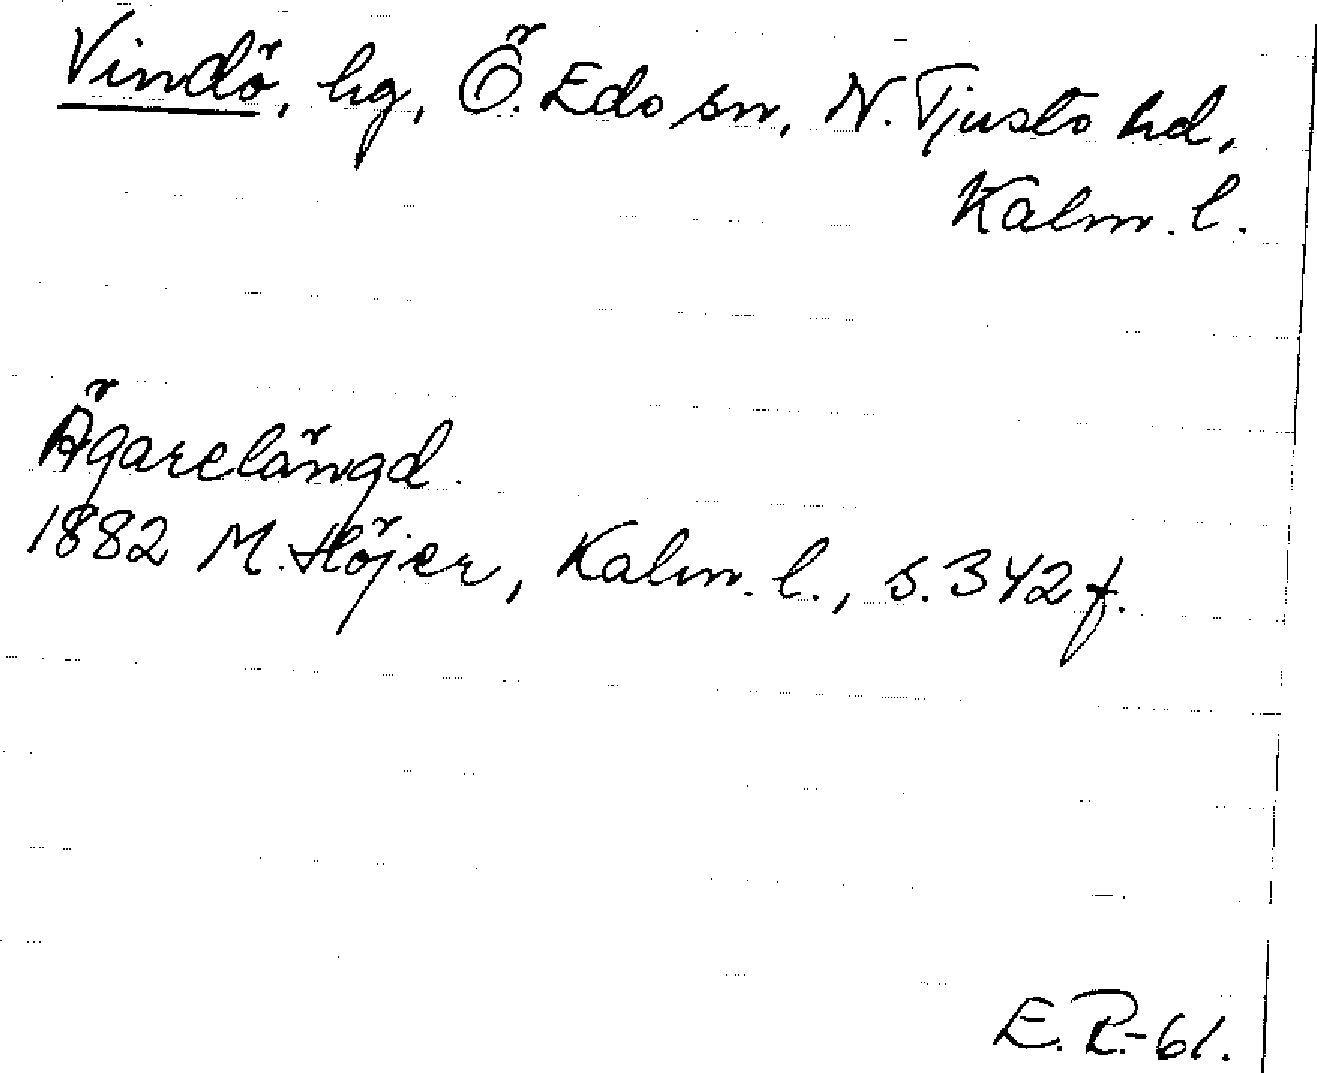 Vindö, hg, Ö. Eds sn, N. Tjusts hd,
Kalm. l.
Ägarelängd.
1882 M. Höjer, Kalm. l., s. 342 f.
E. R.-61.